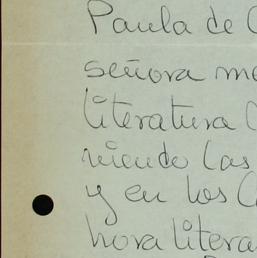 Paula de
señora me
literatura
niendo las
y en los
hora litera